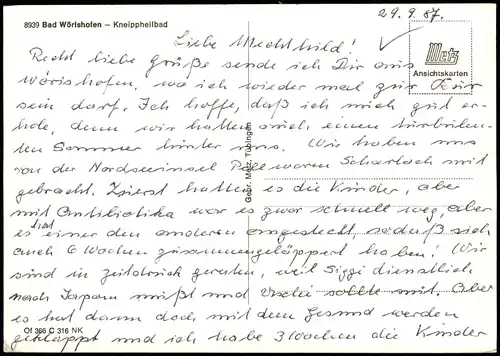 8939 Bad Wörishofen – Kneippheilbad
29.9.87.
Metz
Ansichtskarten
Liebe Mechthild!
Recht liebe Grüße sende ich Dir aus
Wörishofen, wo ich wieder mal zur Kur
sein darf. Ich hoffe, daß ich mich gut er-
hole, denn wir hatten auch einen turbulen-
ten Sommer hinter uns. Wir haben uns
von der Nordseeinsel Pellworm Scharlach mit
gebracht. Zuerst hatten es die Kinder, aber
mit Antibiotika war es zwar schnell weg, aber
es hat einer den anderen angesteckt, sodaß sich
auch 6 Wochen zusammengeläppert haben! Wir
sind in Zeitdruck geraten, weil Siggi dienstlich
nach Japan mußte und sollte mit. Aber
es hat dann doch mit dem Gesund werden
geklappt und ich habe 3 Wochen die Kinder
Gebr. Metz, Tübingen
Of 366 C 316 NK